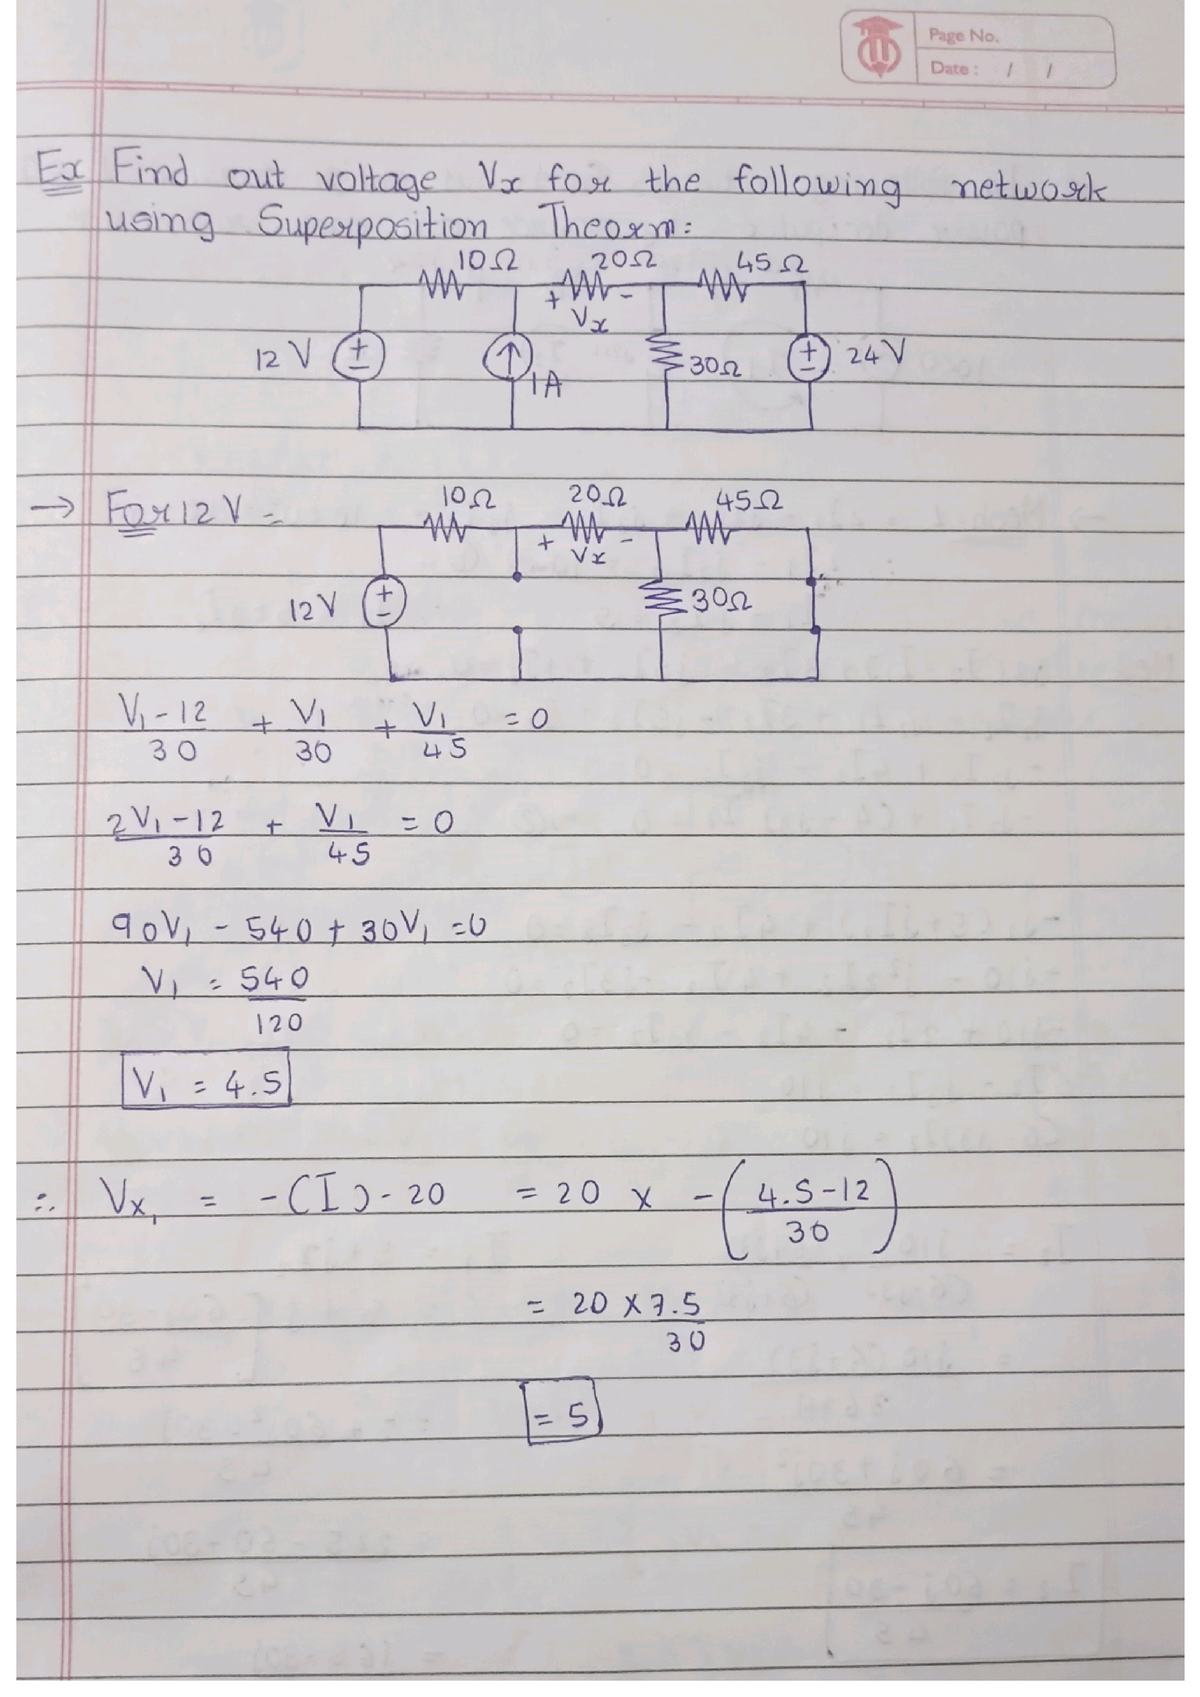 Page No.
Date : / /
Ex Find out voltage Vx for the following network
using Superposition Theorm:
10Ω 20Ω 45Ω
+ Vx -
12V + - 1A 30Ω + - 24V
→ For 12V =
10Ω 20Ω 45Ω
+ Vx -
12V + - 30Ω
V₁-12/30 + V₁/30 + V₁/45 = 0
2V₁-12/30 + V₁/45 = 0
90V₁ - 540 + 30V₁ = 0
V₁ = 540/120
V₁ = 4.5
∴ Vx₁ = -(I) - 20 = 20 x -(4.5-12/30)
= 20 x 7.5/30
= 5